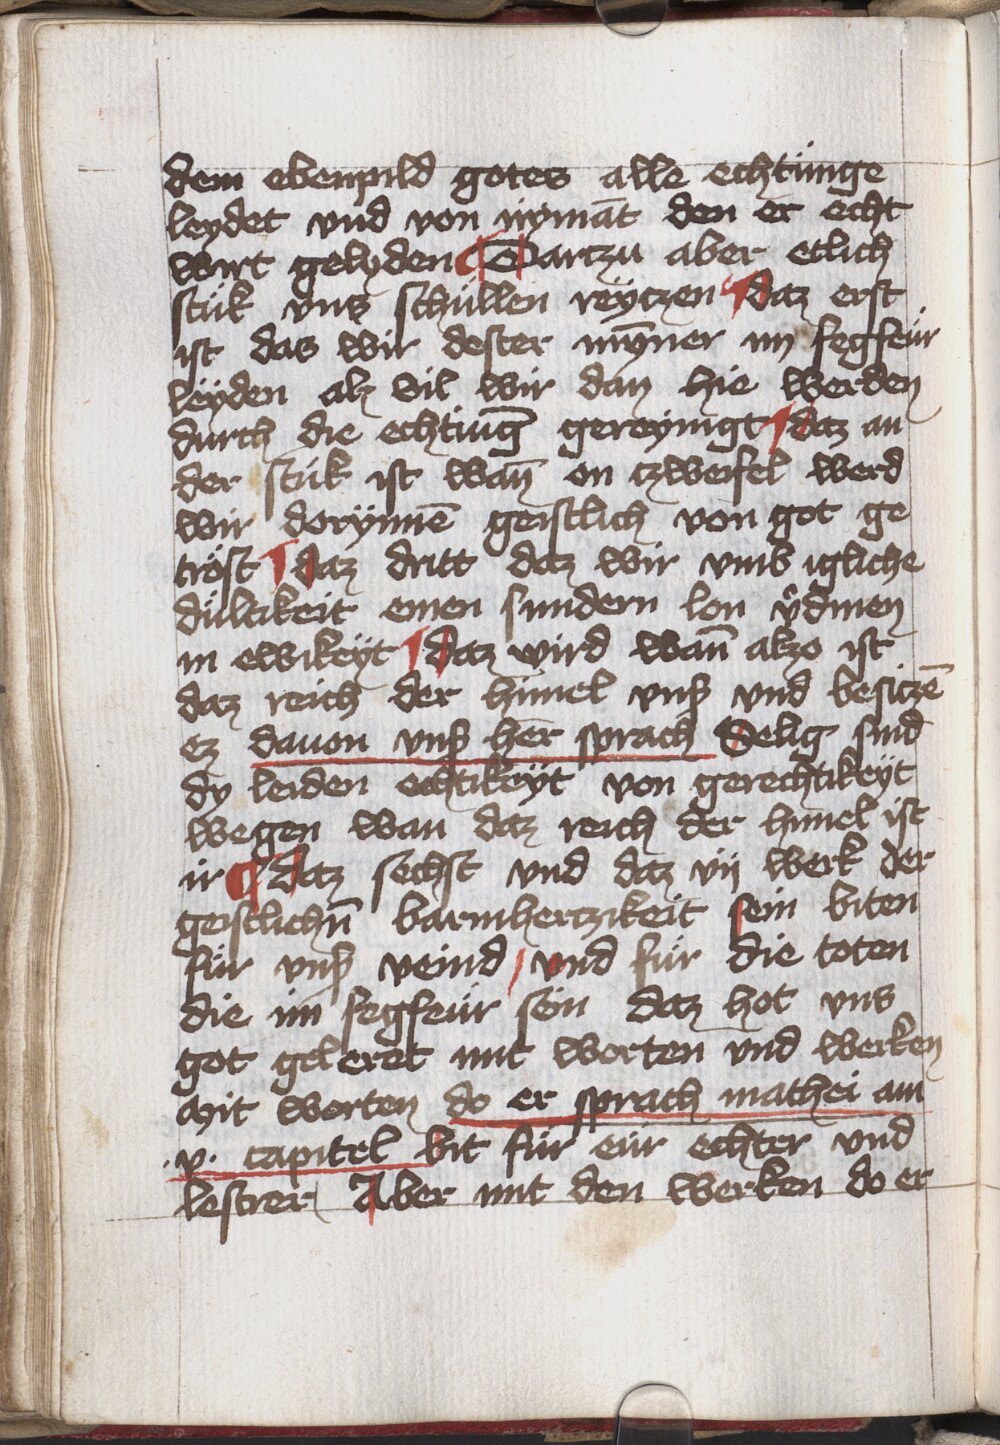 dem ebenpild gotes alle echtünge
leydet vnd von nÿmāt den er echt
wirt gelyden ¶ Dartzu aber etlich
stük vns schüllen reÿtzen ¶ daz erst
ist das wir dester mȳner im fegfeür
leÿden alz vil wir dan hie werden
durch die echtiūg gereynigt ¶ daz an
der stük ist wan̄ on czweifel werd
wir dorÿnnē geistlich von got ge
tröst ¶ daz dritt daz wir vmb igliche
dültikeit einen sundern lon v̊dinen
in ewikeÿt ¶ daz vird wan̄ alzo ist
daz reich der himel vnß vnd besiczē
ez davon vnß her sprach Selig sind
dy leiden echtikeÿt von gerechtikeÿt
wegen wan daz reich der himel ist
ir ¶ Daz sechst vnd daz vij werk der
geistlichn̄ barmhertzikeit sein biten
für vnß veind / vnd für die toten
die im fegfeür sein daz hot vns
got geleret mit worten vnd werken
Mit worten do er sprach mathei am
.v. capitel bit für eür echter vnd
lestrer Aber mit den werken do er